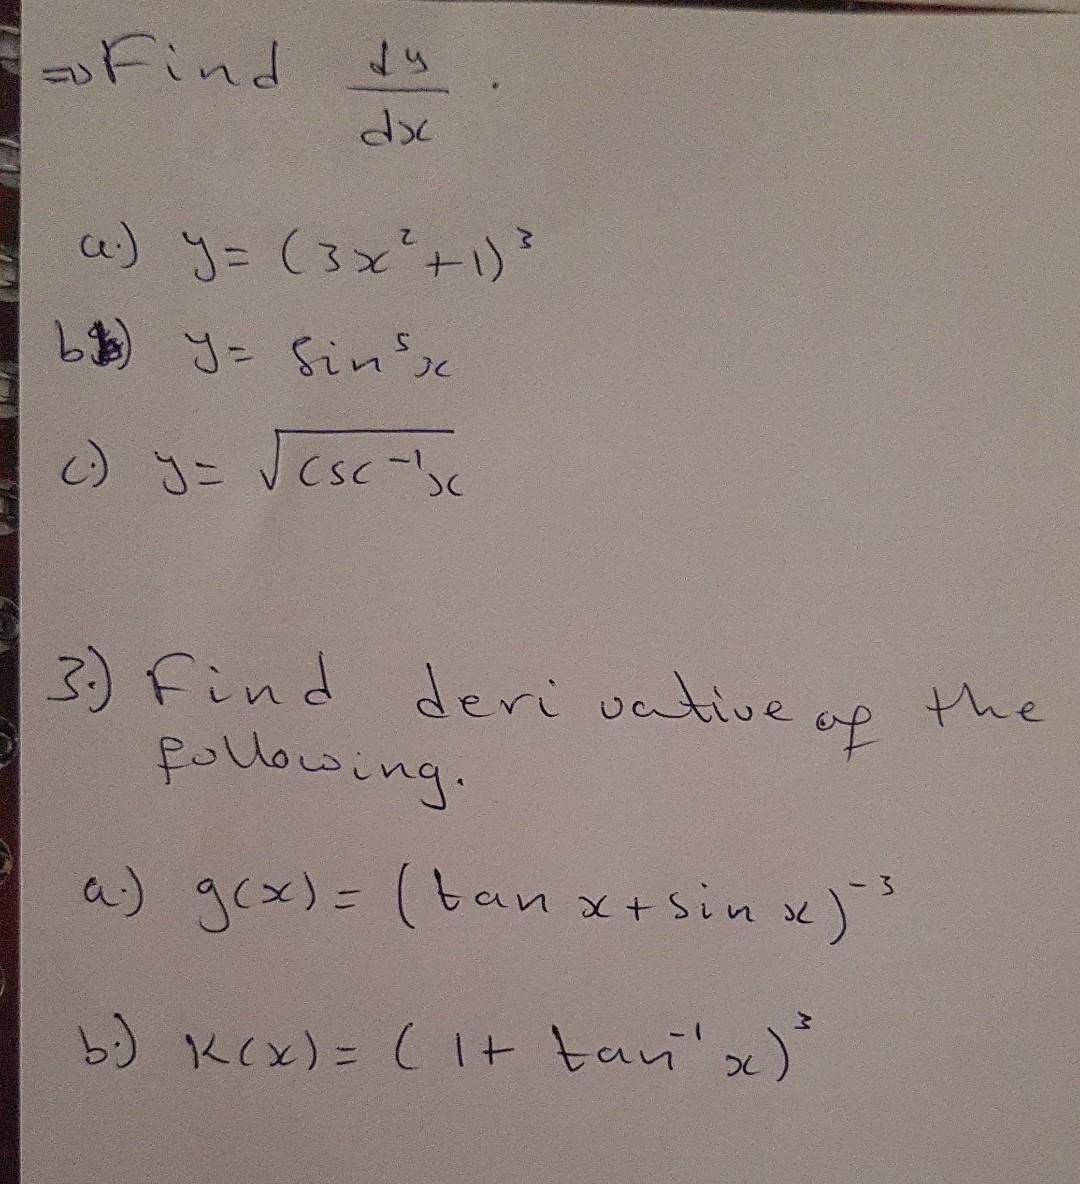 ⇒ Find dy/dx.
a.) y = (3x²+1)³
b) y = sin⁵x
c.) y = √(csc⁻¹x)
3.) Find derivative of the
following.
a.) g(x) = (tan x + sin x)⁻³
b.) K(x) = (1 + tan⁻¹ x)³